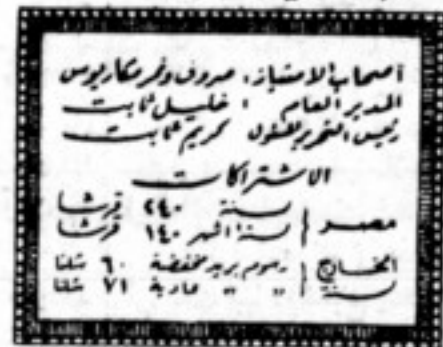 أصحاب الامتياز: صروف ونمر مكاريوس
المدير العام : خليل ثابت
رئيس التحرير المسئول كريم ثابت
الاشتراكات
مصر سنة ٢٤٠ قرشا
ستة اشهر ١٤٠ قرشا
الخارج رسوم بريد مخفضة ٦٠ شلنا
سنة " " عادية ٧١ شلنا